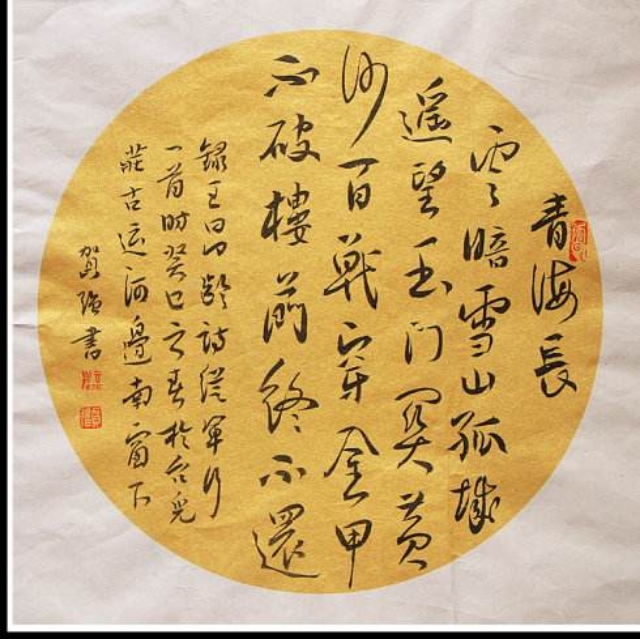 青海長
雲暗雪山孤城
遥望玉門関黄
沙百戰穿金甲
不破樓蘭終不還
録王昌齡詩從軍行
一首時癸巳之春於台兒
莊古运河邊南窗下
賀强書